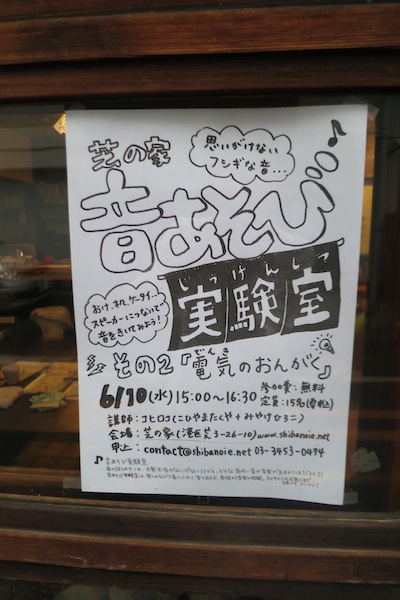 芝の家
思いがけない
フシギな音...
音あそび
じっけんしつ
実験室
おけ、机、ケータイ...
スピーカーにつないで
音をきいてみよう!
その2『電気のおんがく』
でんき
6/10(水)15:00~16:30
参加費:無料
定員:15名(要申込)
講師:コヒロコ(こひやまたくや+みやけひろこ)
会場:芝の家(港区芝3-26-10)www.shibanoie.net
申込:contact@shibanoie.net 03-3453-0494
音あそび実験室